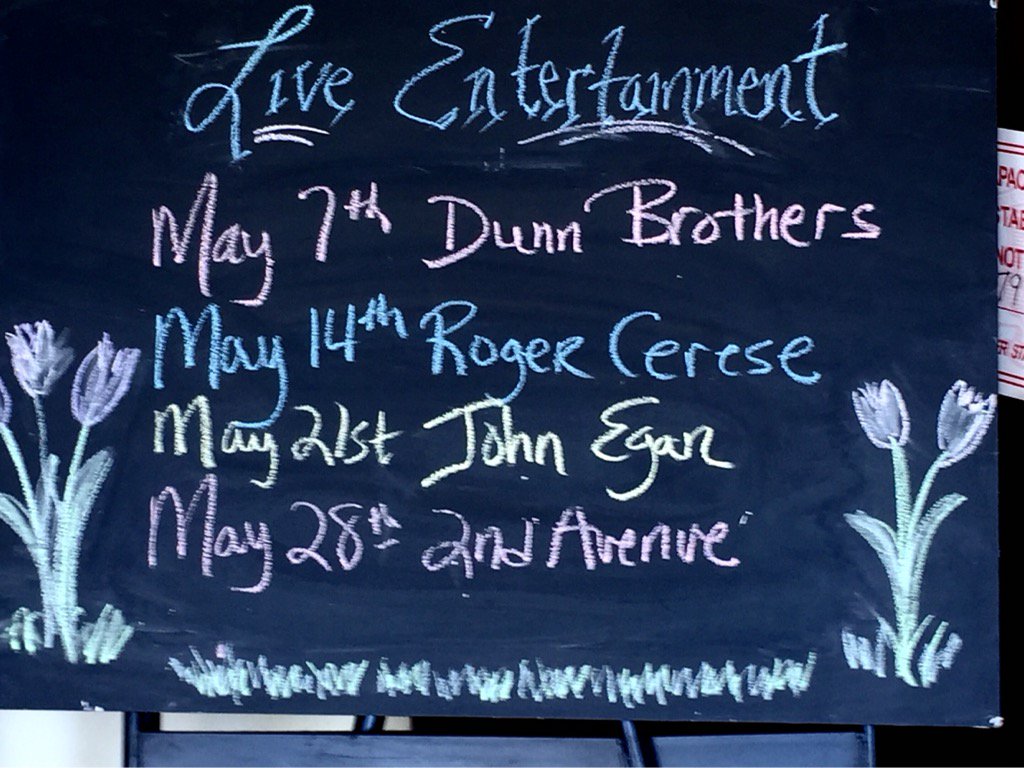 Live Entertainment
May 7th Dunn Brothers
May 14th Roger Cerese
May 21st John Egan
May 28th 2nd Avenue
NOT